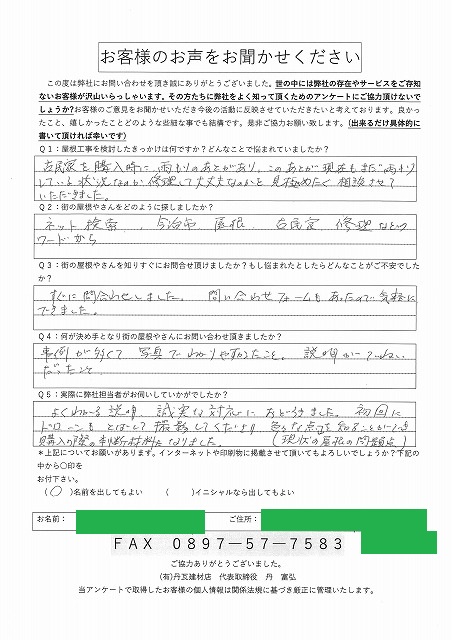 お客様のお声をお聞かせください
この度は弊社にお問い合わせを頂き誠にありがとうございました。世の中には弊社の存在やサービスをご存知
ないお客様が沢山いらっしゃいます。その方たちに弊社をよく知って頂くためのアンケートにご協力頂けないで
しょうか?お客様のご意見をお聞かせいただき今後の活動に反映させていただきたいと考えております。良かっ
たこと、嬉しかったことどのような些細な事でも結構です。是非ご協力お願い致します。（出来るだけ具体的に
書いて頂ければ幸いです）
Q1：屋根工事を検討したきっかけは何ですか？どんなことで悩まれていましたか
古民家を購入時に、雨もりのあとがあり、このあとが現在もまだ雨もり
している状況なのか 修理して大丈夫なのかを見極めたく相談させて
いただきました。
Q2：街の屋根やさんをどのように探しましたか？
ネット検索、今治市 屋根、古民家 修理などの
ワードから
Q3：街の屋根やさんを知りすぐにお問合せ頂けましたか？もし悩まれたとしたらどんなことがご不安でした
か？
すぐに問合わせしました。 問い合わせフォームもあったので気軽に
できました。
Q4：何が決め手となり街の屋根やさんにお問い合わせ頂きましたか？
事例が多くて 写真でわかりやすかったこと。 説明がていねい
だったこと。
Q5：実際に弊社担当者がお伺いしていかがでしたか？
よくわかる説明、誠実な対応におどろきました。 初回に
ドローンもとばして撮影してくださり 色んな点を知ることができ
購入の際の判断材料になりました。（現状の屋根の問題点）
*上記についてお願いがあります。インターネットや印刷物に掲載させて頂いてもよろしいでしょうか？下記の
中から〇印を
お付下さい。
（〇）名前を出してもよい （ ）イニシャルなら出してもよい
お名前： ご住所：
FAX 0897－57－7583
ご協力ありがとうございました。
(有)丹瓦建材店 代表取締役 丹 富弘
当アンケートで取得したお客様の個人情報は関係法規に基づき厳正に管理いたします。